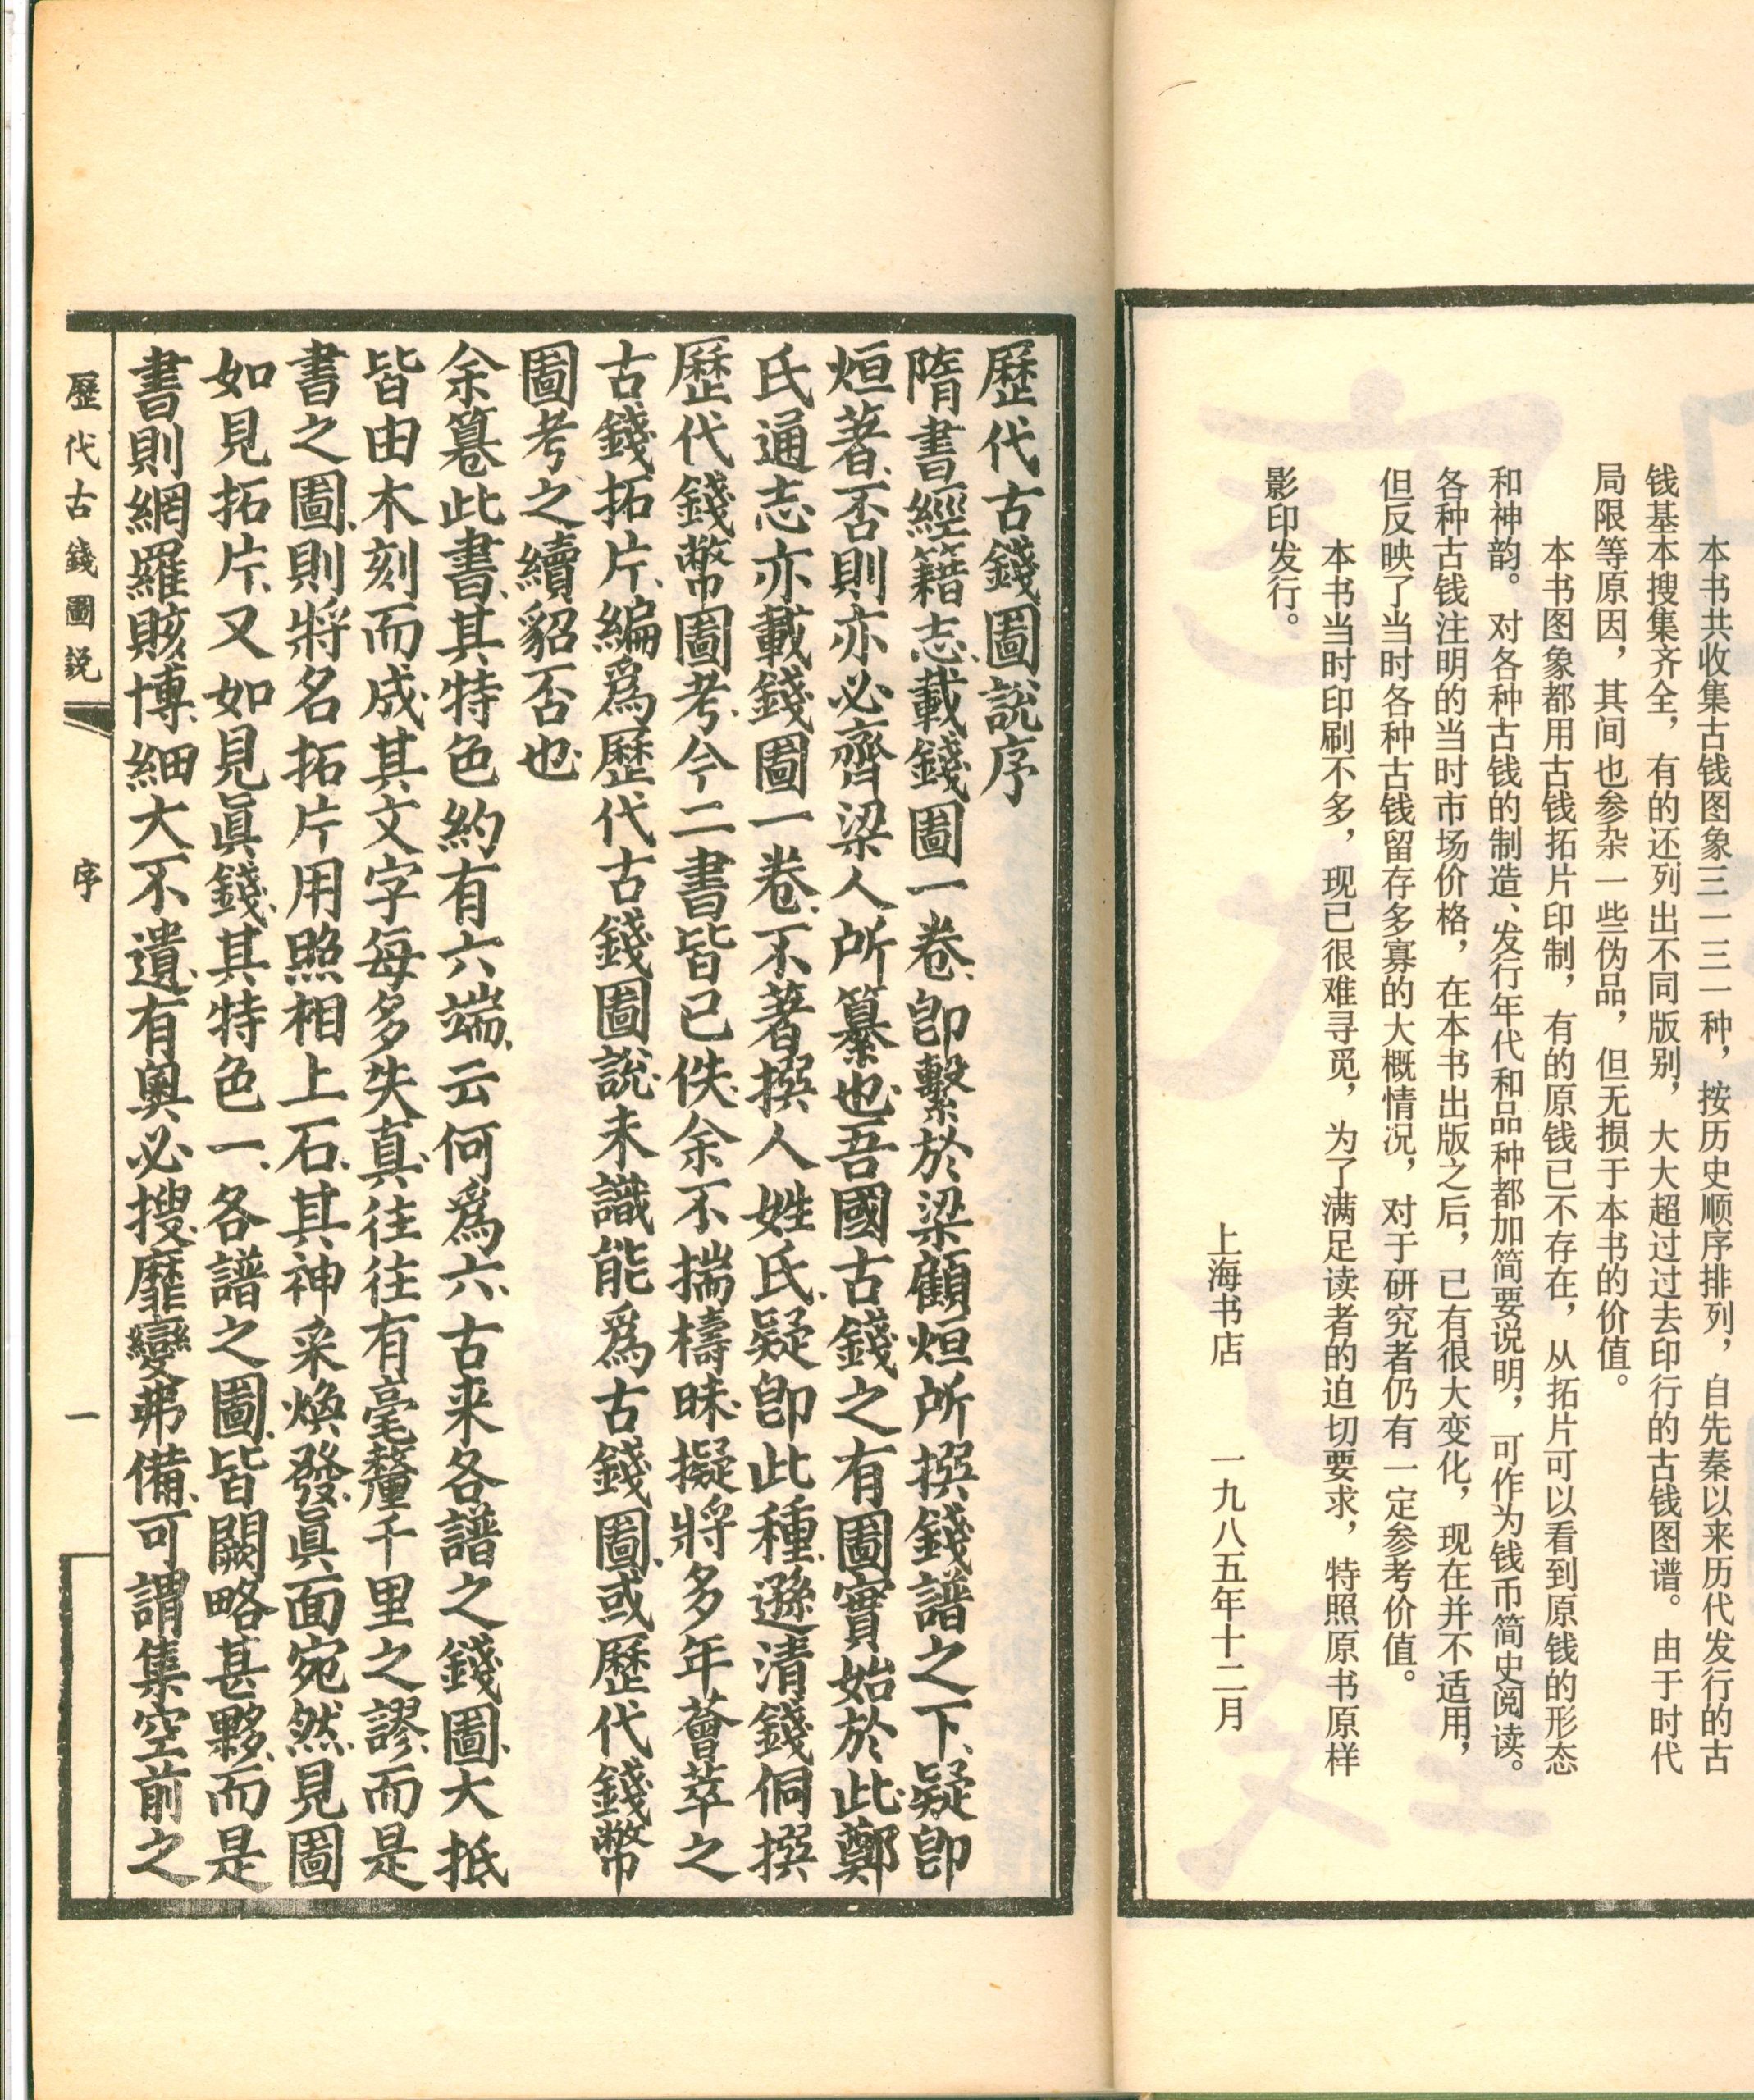 本书共收集古钱图象三一三一种，按历史顺序排列，自先秦以来历代发行的古
钱基本搜集齐全，有的还列出不同版别，大大超过过去印行的古钱图谱。由于时代
局限等原因，其间也参杂一些伪品，但无损于本书的价值。
本书图象都用古钱拓片印制，有的原钱已不存在，从拓片可以看到原钱的形态
和神韵。对各种古钱的制造、发行年代和品种都加简要说明，可作为钱币简史阅读。
各种古钱注明的当时市场价格，在本书出版之后，已有很大变化，现在并不适用，
但反映了当时各种古钱留存多寡的大概情况，对于研究者仍有一定参考价值。
本书当时印刷不多，现已很难寻觅，为了满足读者的迫切要求，特照原书原样
影印发行。
上海书店 一九八五年十二月
歷代古錢圖說序
隋書經籍志、載錢圖一卷、卽繫於梁顧烜所撰錢譜之下、疑卽
烜著、否則亦必齊梁人所纂也、吾國古錢之有圖實始於此、鄭
氏通志亦載錢圖一卷、不著撰人姓氏、疑卽此種、遜清錢侗撰
歷代錢幣圖考、今二書皆已佚、余不揣檮昧、擬將多年薈萃之
古錢拓片、編爲歷代古錢圖說、未識能爲古錢圖、或歷代錢幣
圖考之續貂否也、
余纂此書、其特色約有六端、云何爲六、古来各譜之錢圖、大抵
皆由木刻而成、其文字每多失真、往往有毫釐千里之謬、而是
書之圖、則將名拓片用照相上石、其神采煥發、眞面宛然、見圖
如見拓片、又如見眞錢、其特色一、各譜之圖、皆闕略甚夥、而是
書則網羅賅博、細大不遺、有奧必搜、靡變弗備、可謂集空前之
歷代古錢圖説
序
一